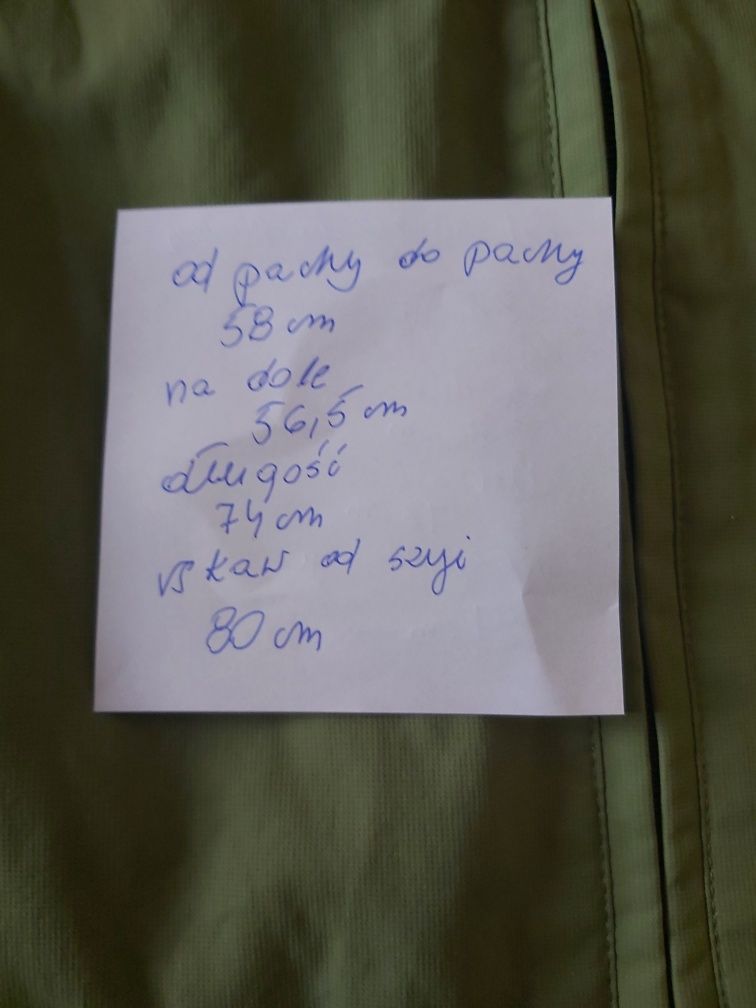 od pachy do pachy
58 cm
na dole
56,5 cm
długość
74 cm
rękaw od szyi
80 cm